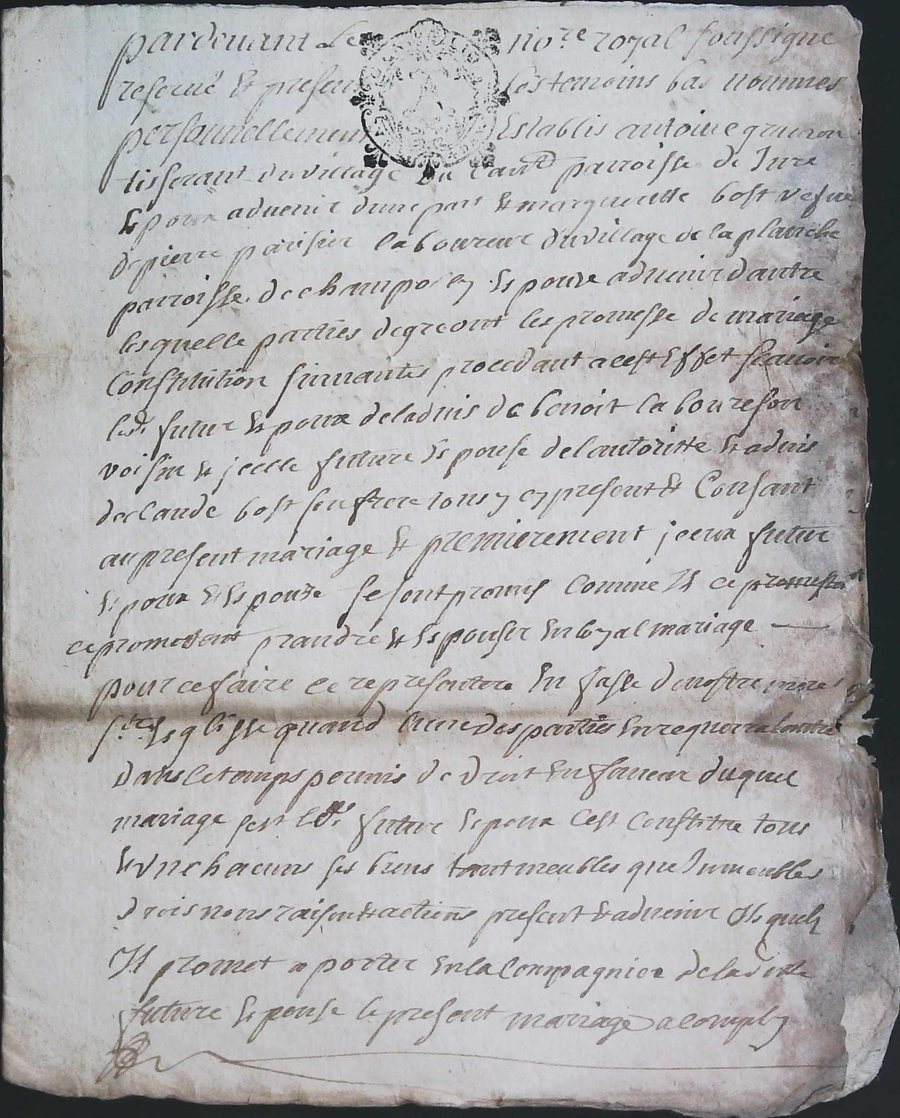 pardevant Le no.re royal soussigné
reservé & presen les temoins bas nommes
personnellement Establis antoine grivion
tisserant du village Du parroisse de Jure
Espoux advenir dune part & margueritte bost vefve
de pierre parisier laboureur du village de la planche
parroisse de champoly Espouse advenir dautre
lesquelle parties degreont les promesse de mariage
Constitution suivantes procedant a cest Effet scavoir
led. futur Espoux deladvis de benoit labouresou
voisin & jcelle future Espouse de lautoritte & advis
de claude bost son frere tous y cy present & Consant
au present mariage & premierement jceux futur
Espoux & Espouze se sont promis comme Il ce
ce promettent prandre & Espouser En loyal mariage
pour ce faire ce representere En fasse de nostre mere
s.te Esglisse quand lune des parties En requerra lautre
dans le temps permis de droit En faveur duquel
mariage led. futur Espoux cest Constitue tous
& un chacuns ses biens tant meubles que Jmmeubles
drois noms raison & actions present & advenir Esquels
Il promet aporter En la Compagnie de ladite
future Espouse le present mariage acomply